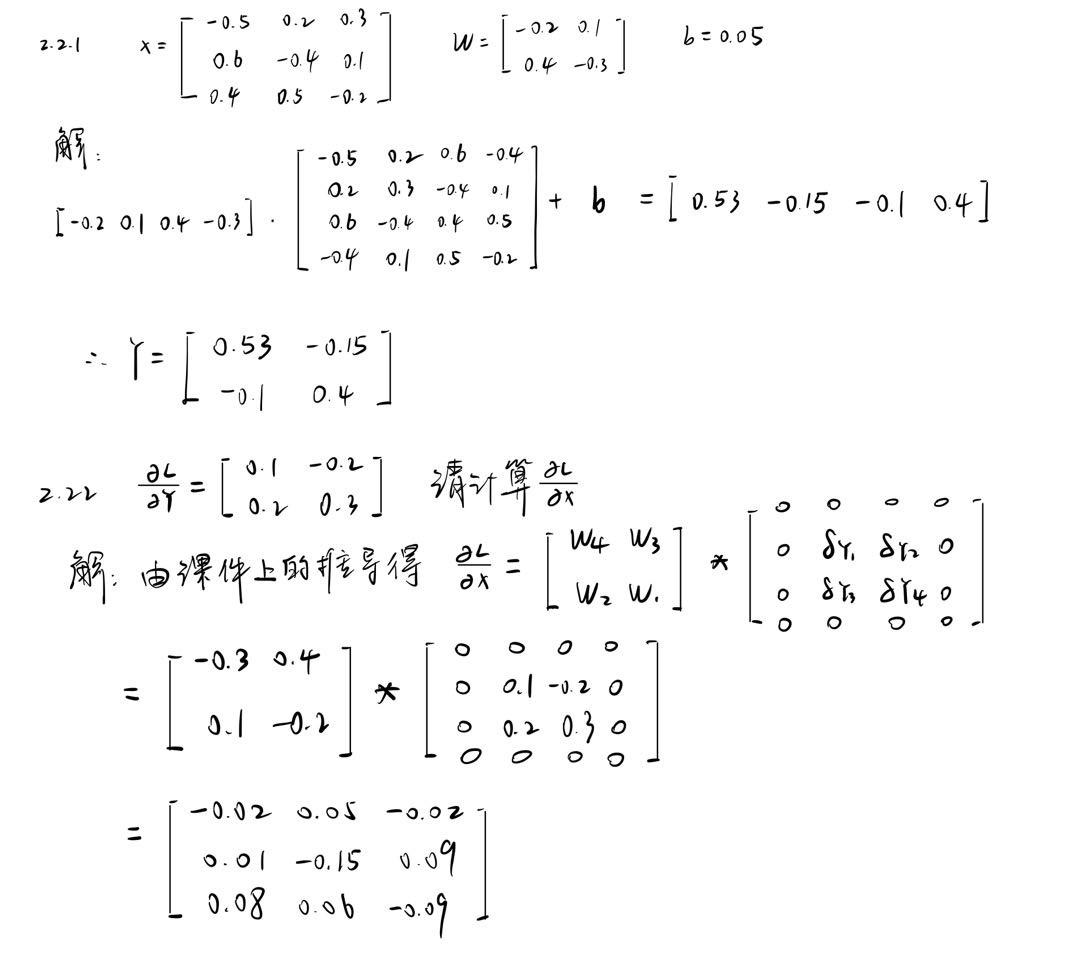 2.2.1 x = [ -0.5 0.2 0.3 W = [ -0.2 0.1 b = 0.05
0.6 -0.4 0.1 0.4 -0.3 ]
0.4 0.5 -0.2 ]
解:
[-0.2 0.1 0.4 -0.3] · [ -0.5 0.2 0.6 -0.4
0.2 0.3 -0.4 0.1
0.6 -0.4 0.4 0.5
-0.4 0.1 0.5 -0.2 ] + b = [ 0.53 -0.15 -0.1 0.4 ]
∴ Y = [ 0.53 -0.15
-0.1 0.4 ]
2.22 ∂L/∂Y = [ 0.1 -0.2 请计算 ∂L/∂x
0.2 0.3 ]
解: 由课件上的推导得 ∂L/∂x = [ W4 W3 * [ 0 0 0 0
W2 W1 ] 0 δY1 δY2 0
0 δY3 δY4 0
0 0 0 0 ]
= [ -0.3 0.4 * [ 0 0 0 0
0.1 -0.2 ] 0 0.1 -0.2 0
0 0.2 0.3 0
0 0 0 0 ]
= [ -0.02 0.05 -0.02
0.01 -0.15 0.09
0.08 0.06 -0.09 ]